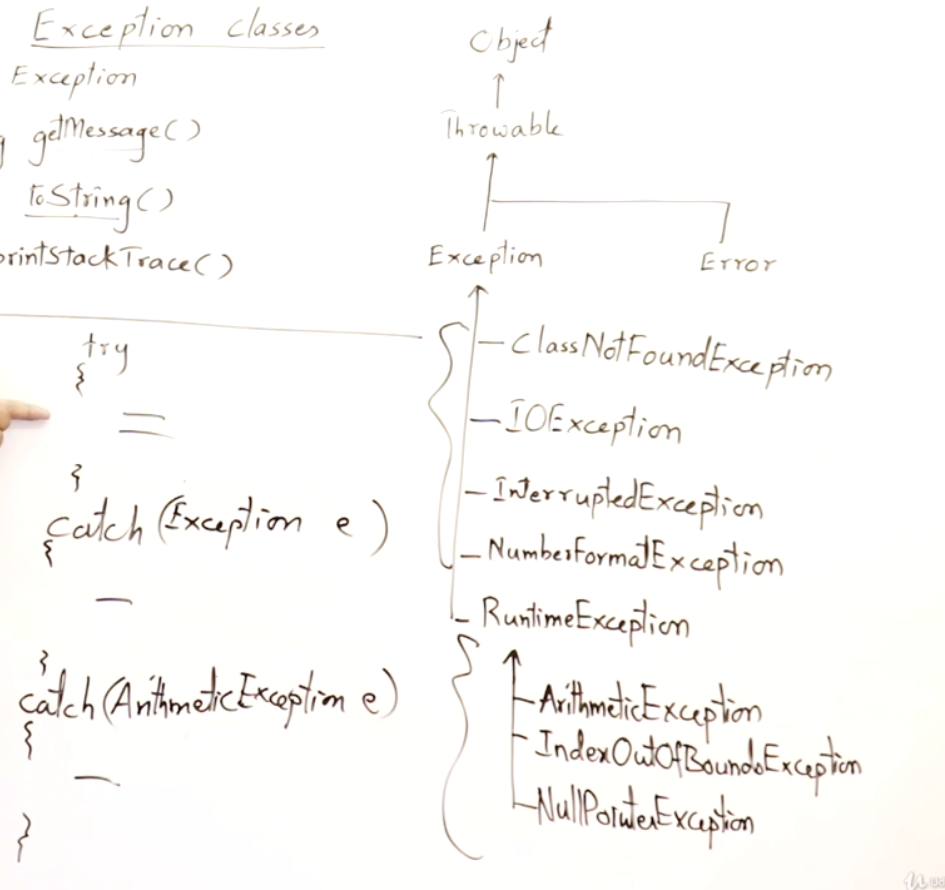 Exception classes
Exception
getMessage()
toString()
printStackTrace()
try
{
}
catch(Exception e)
{
}
catch(ArithmeticException e)
{
}
Object
Throwable
Exception
Error
ClassNotFoundException
IOException
InterruptedException
NumberFormatException
RuntimeException
ArithmeticException
IndexOutOfBoundsException
NullPointerException